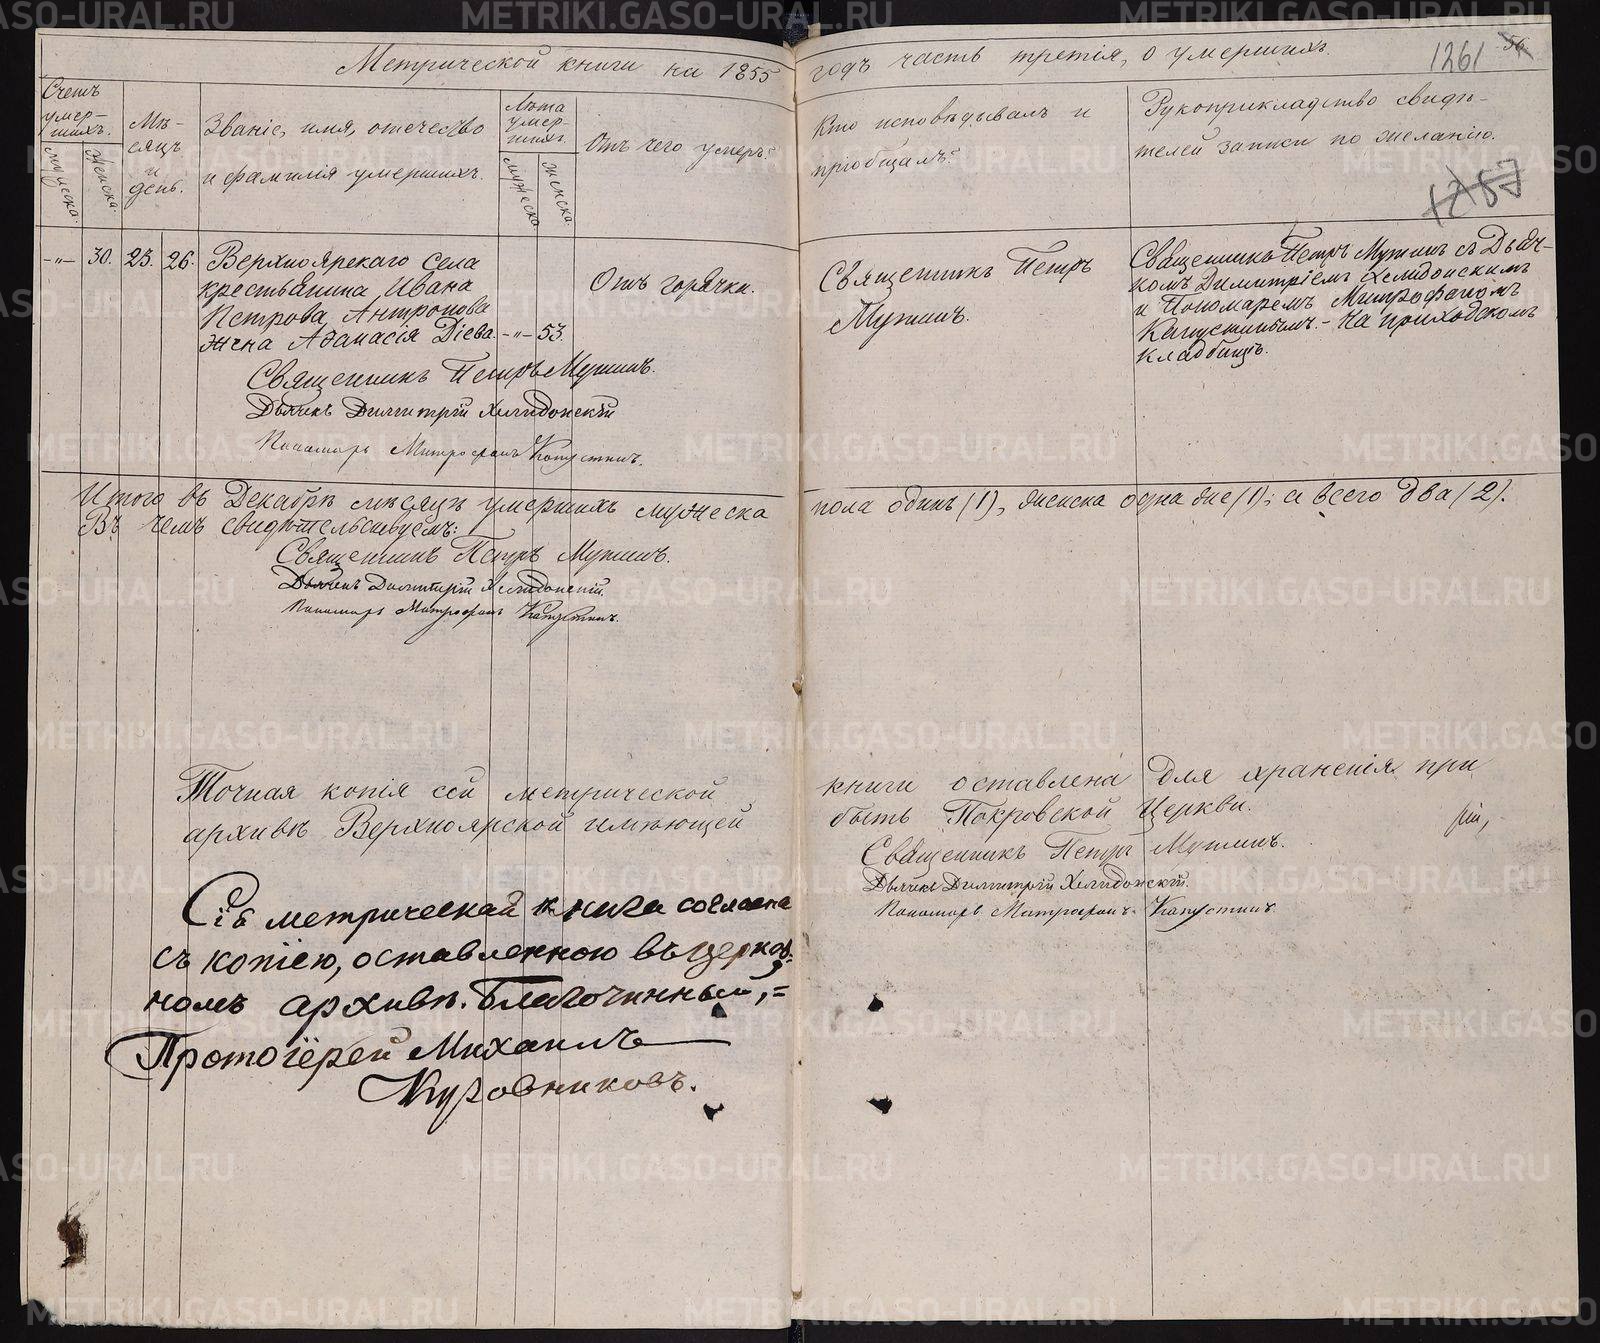 Метрической книги на 1855 годъ часть третія, о умершихъ.
1261
56
Счетъ умер-шихъ.
мужеска.
женска.
Мѣ-сяцъ и день.
Званіе, имя, отечество
и фамилія умершихъ.
Лѣта умер-шихъ
мужеска
женска.
Отъ чего умеръ.
Кто исповѣдывалъ и
пріобщалъ.
Рукоприкладство свидѣ-
телей записи по желанію.
1257
-"- 30. 23. 26. Верхноярскаго села
крестьянина Ивана
Петрова Антропова
жена Аѳанасія Діева. -"- 53.
Отъ горячки.
Священникъ Петръ
Мутинъ.
Священникъ Петръ Мутинъ съ Дьяч-
комъ Димитріемъ Хелидонскимъ
и Пономаремъ Митрофаномъ
Капустинымъ. - На приходскомъ
кладбищѣ.
Священникъ Петръ Мутинъ.
Дьячекъ Димитрій Хелидонскій
Пономарь Митрофанъ Капустинъ.
Итого въ Декабрѣ мѣсяцѣ умершихъ мужеска пола одинъ (1), женска одна же (1); а всего два (2).
Въ чемъ свидѣтельствуемъ:
Священникъ Петръ Мутинъ.
Дьячекъ Димитрій Хелидонскій.
Пономарь Митрофанъ Капустинъ.
Точная копія сей метрической книги оставлена для храненія при
архивѣ Верхноярской имѣющей быть Покровской Церкви.
Священникъ Петръ Мутинъ.
Дьячекъ Димитрій Хелидонскій.
Пономарь Митрофанъ Капустинъ.
Сія метрическая книга согласна
съ копіею, оставленною въ церков-
номъ архивѣ. Благочинный,=
Протоіерей Михаилъ